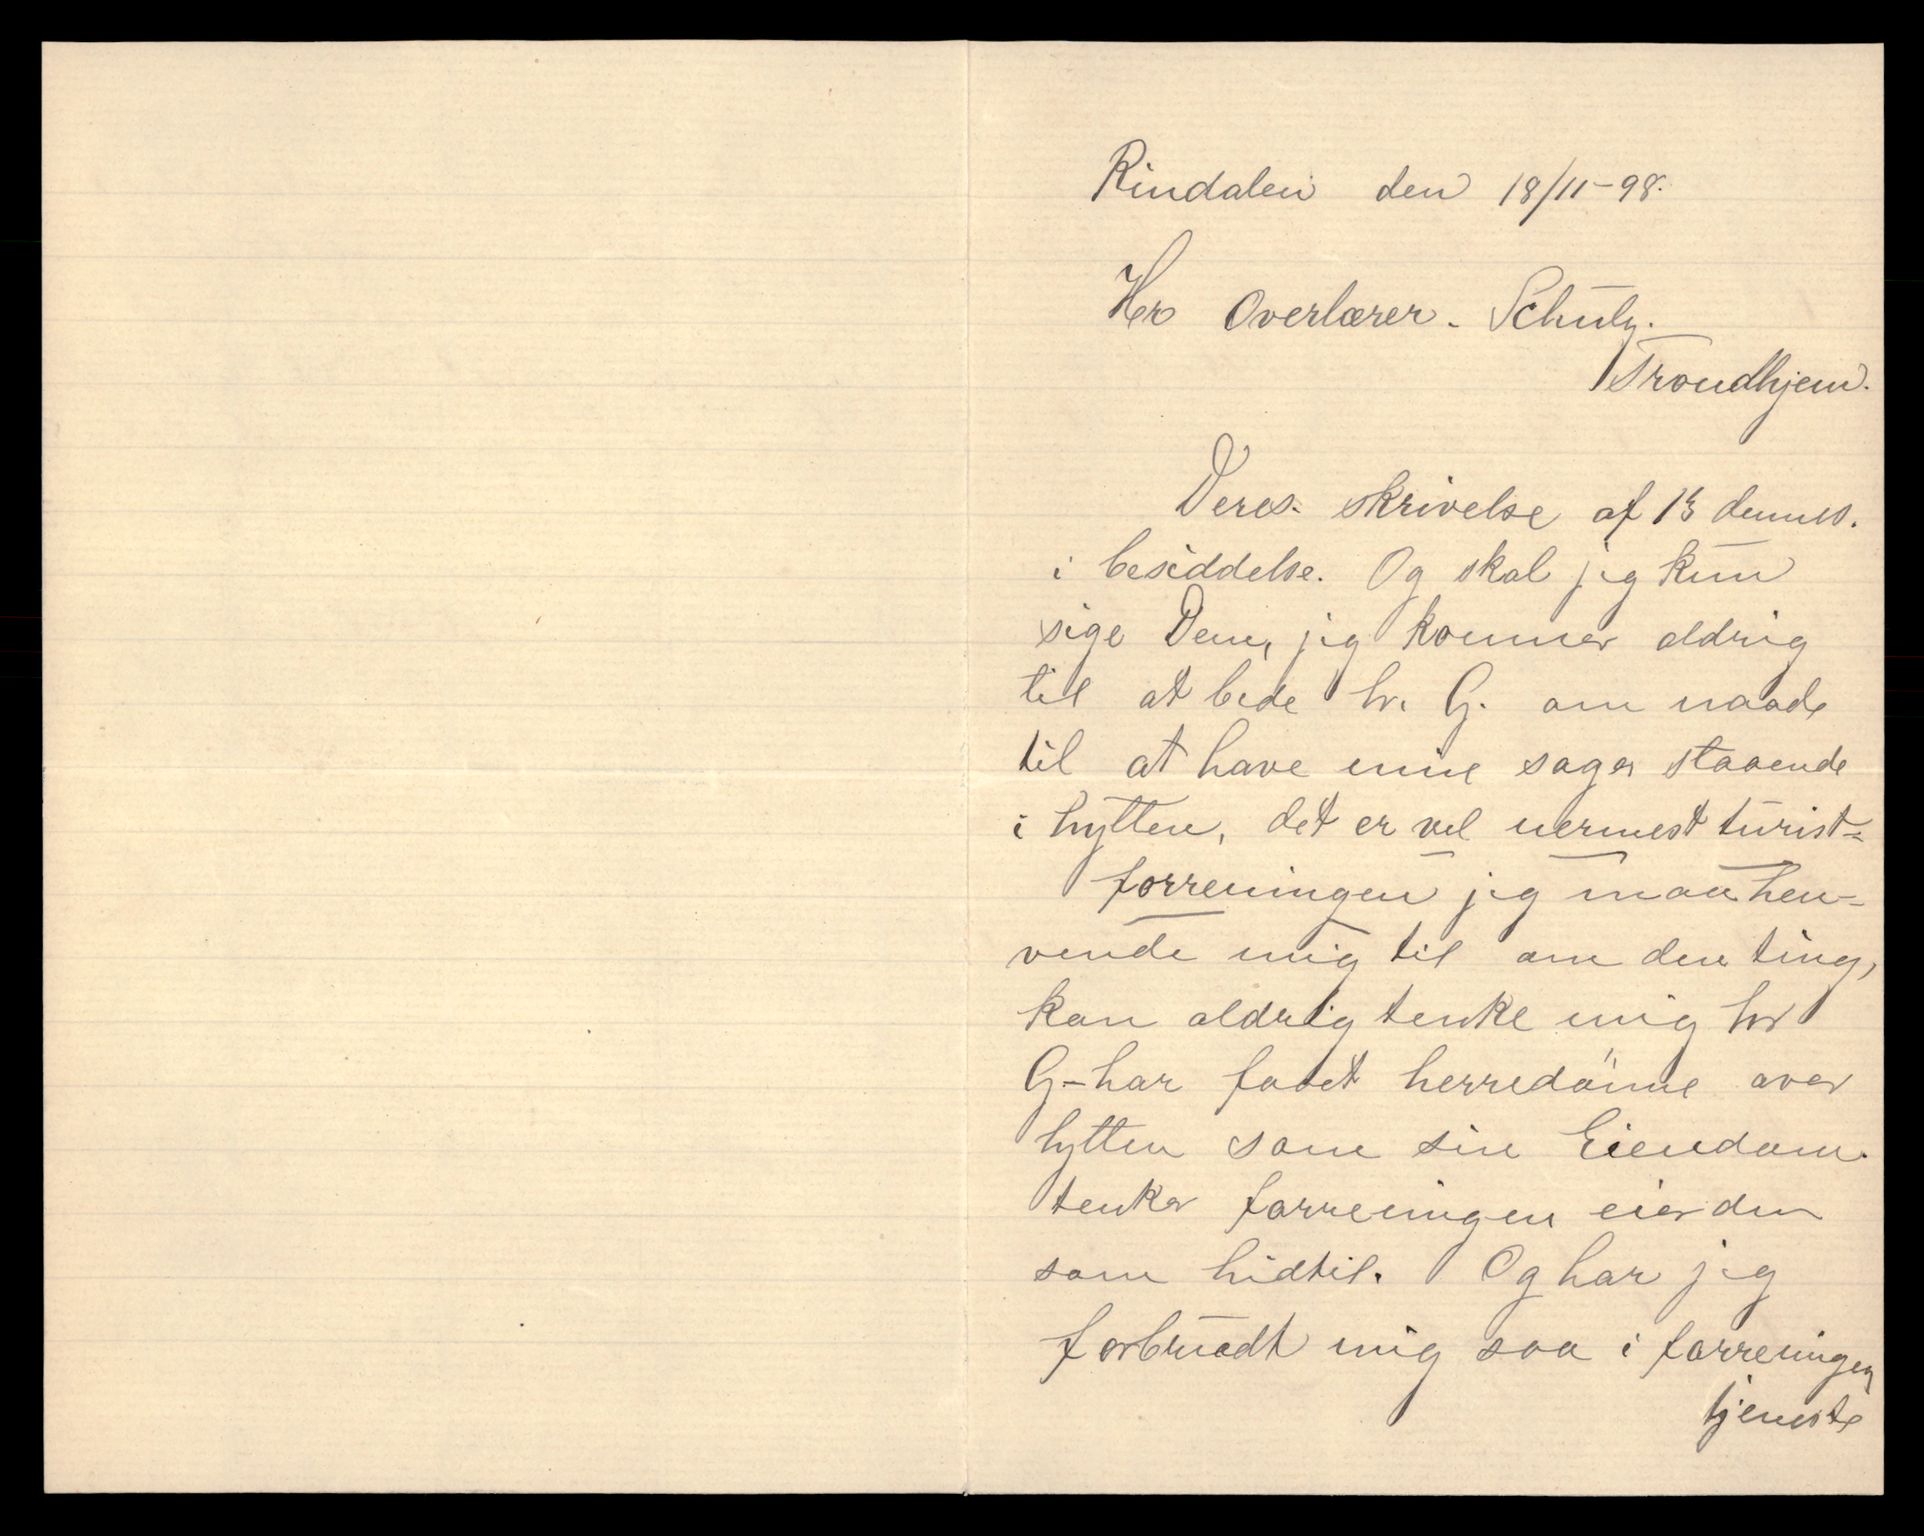 Rindalen den 18/11-98.
Hr Overlærer. Schulz.
Trondhjem.
Deres skrivelse af 15 dennes.
i besiddelse. Og skal jeg kun
sige Dem, jeg kommer aldrig
til at bede hr. G. om naade
til at have mine sager staaende
i hytten, det er vel nermest turist-
forreningen jeg maa hen-
vende mig til om den ting,
kan aldrig tenke mig hr
G- har faaet herredømme over
hytten som sin Eiendom.
tenker forreningen eier den
som hidtil. Og har jeg
forbrudt mig saa i forreningen
tjeneste